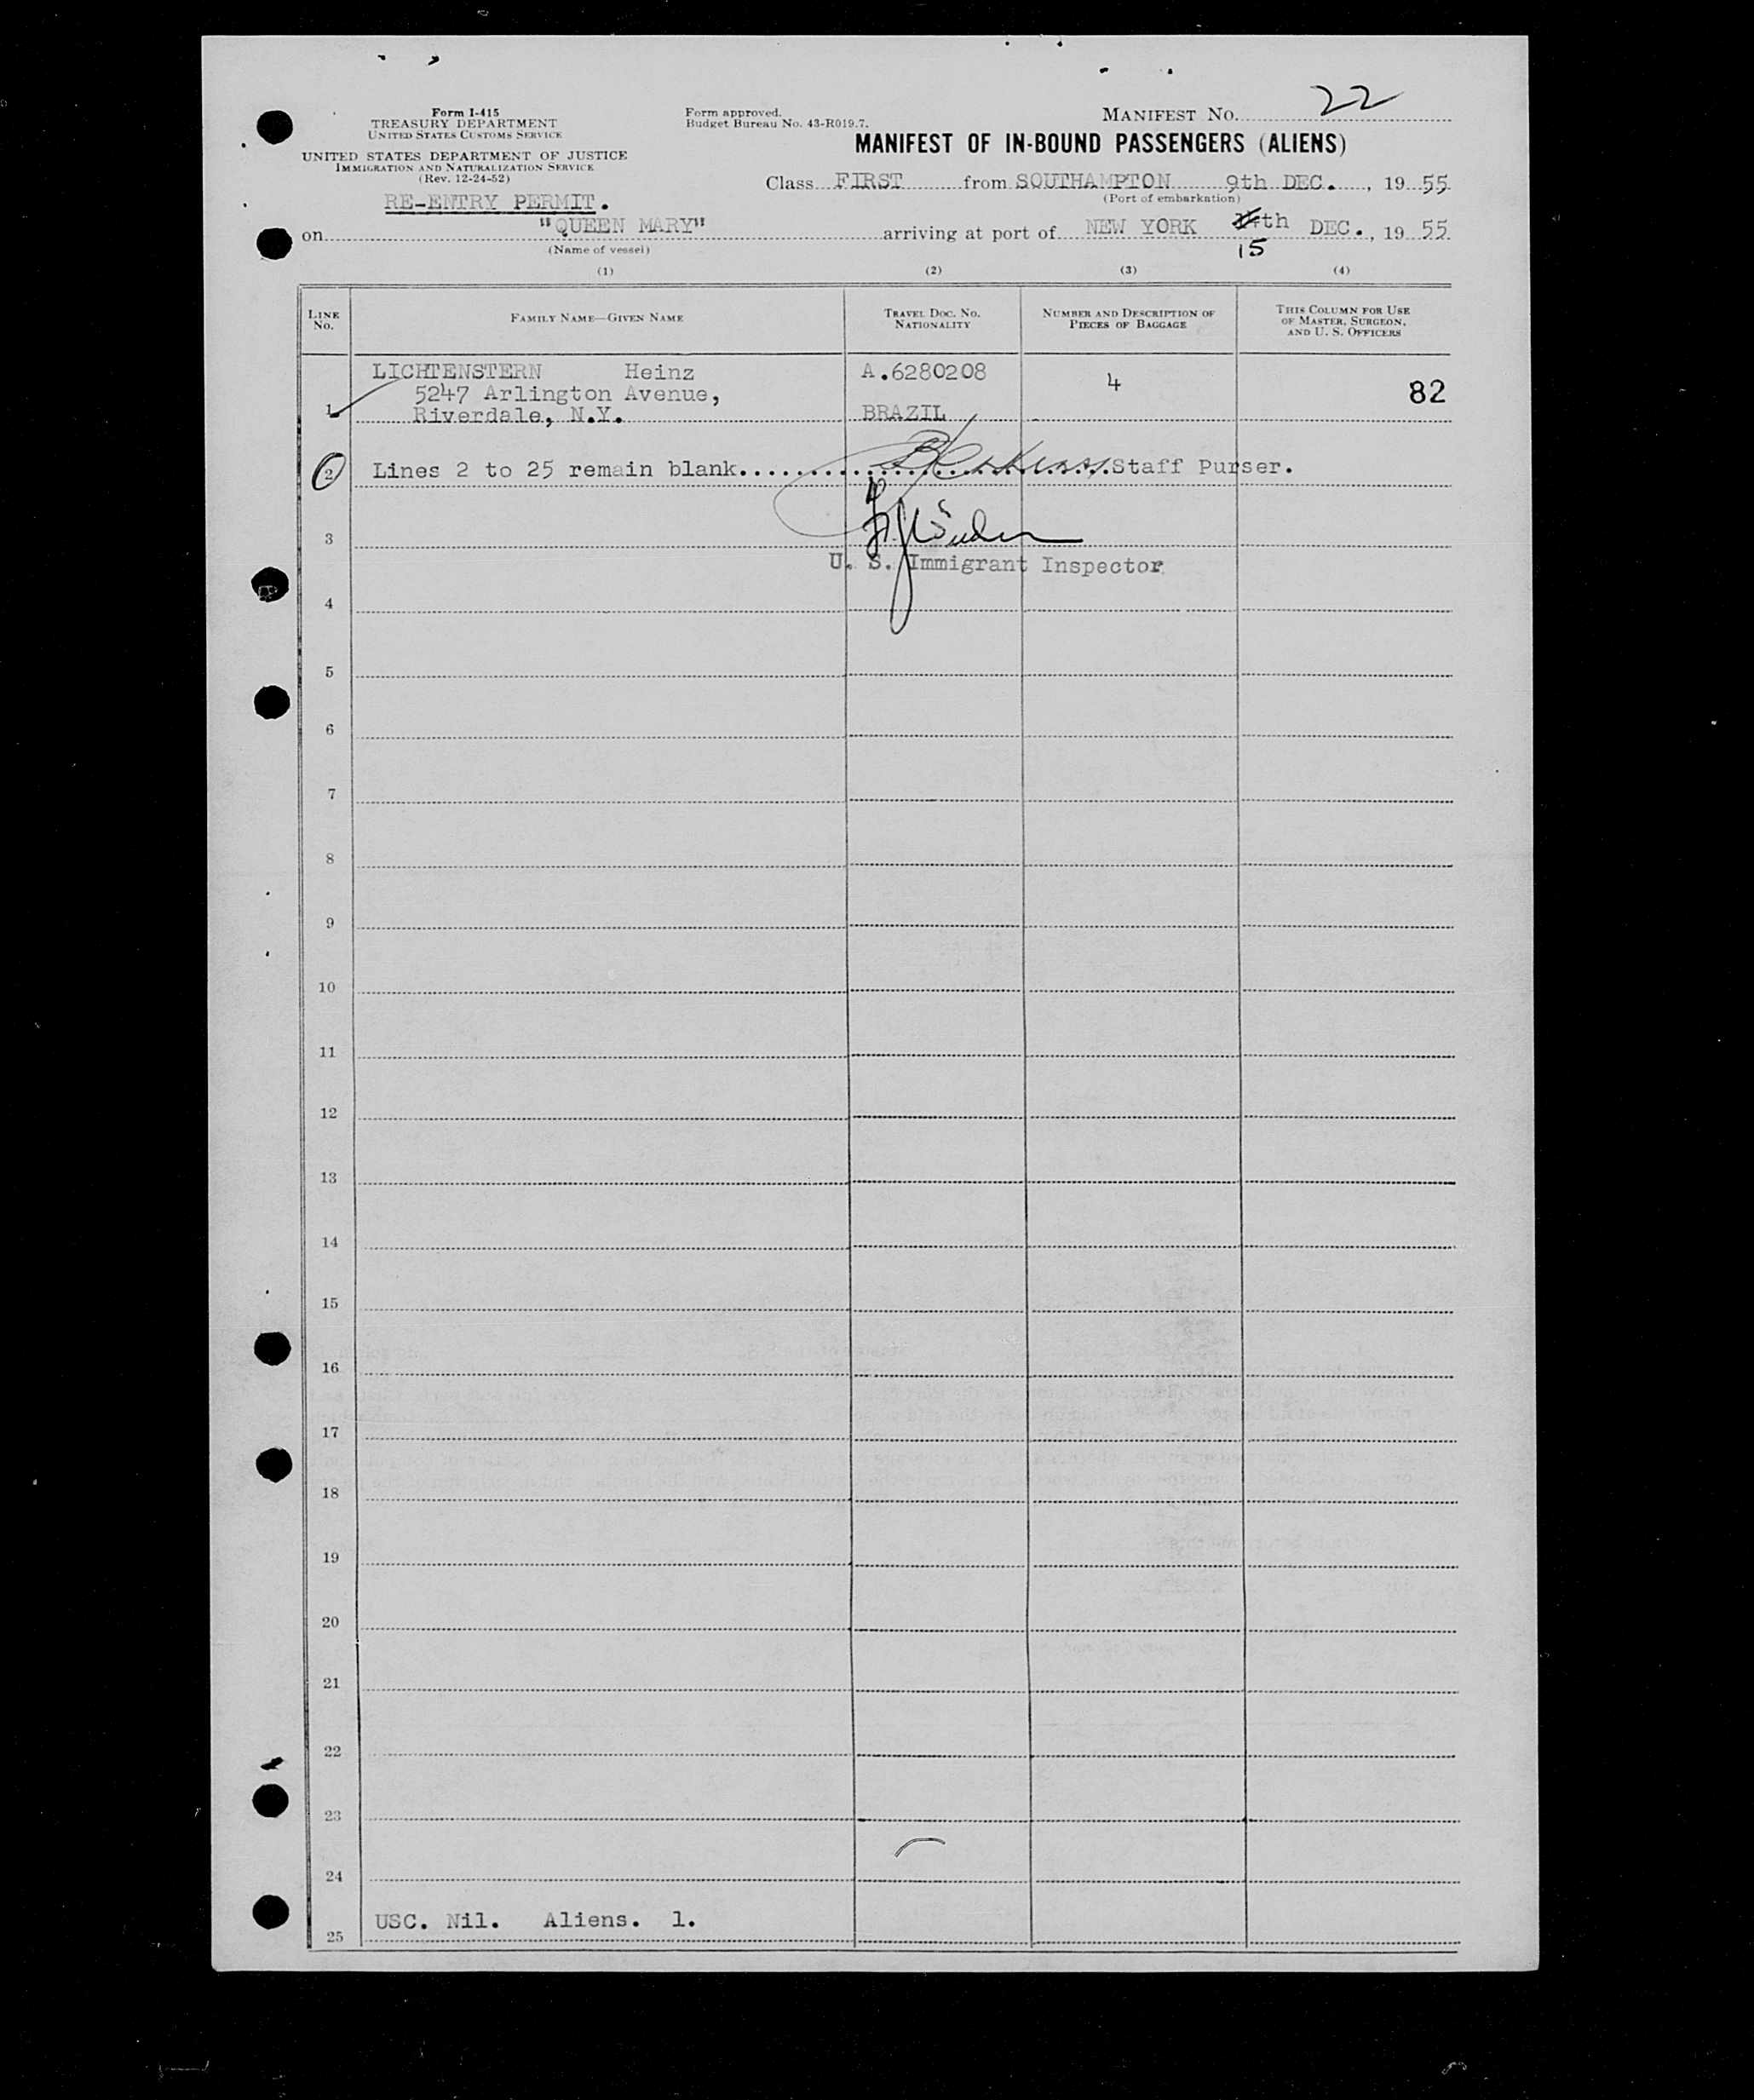 Form I-415
TREASURY DEPARTMENT
UNITED STATES CUSTOMS SERVICE
UNITED STATES DEPARTMENT OF JUSTICE
IMMIGRATION AND NATURALIZATION SERVICE
(Rev. 12-24-52)
RE-ENTRY PERMIT.
Form approved.
Budget Bureau No. 43-R019.7.
MANIFEST NO. 22
MANIFEST OF IN-BOUND PASSENGERS (ALIENS)
Class FIRST from SOUTHAMPTON 9th DEC., 19 55
(Port of embarkation)
on "QUEEN MARY" arriving at port of NEW YORK th DEC., 19 55
15
(Name of vessel)
(1) (2) (3) (4)
LINE NO. FAMILY NAME—GIVEN NAME TRAVEL DOC. NO. NATIONALITY NUMBER AND DESCRIPTION OF PIECES OF BAGGAGE THIS COLUMN FOR USE OF MASTER, SURGEON, AND U. S. OFFICERS
LICHTENSTERN Heinz A.6280208 4 82
5247 Arlington Avenue,
1 Riverdale, N.Y. BRAZIL
2 Lines 2 to 25 remain blank.......... Staff Purser.
3
U. S. Immigrant Inspector
4
5
6
7
8
9
10
11
12
13
14
15
16
17
18
19
20
21
22
23
24
USC. Nil. Aliens. 1.
25